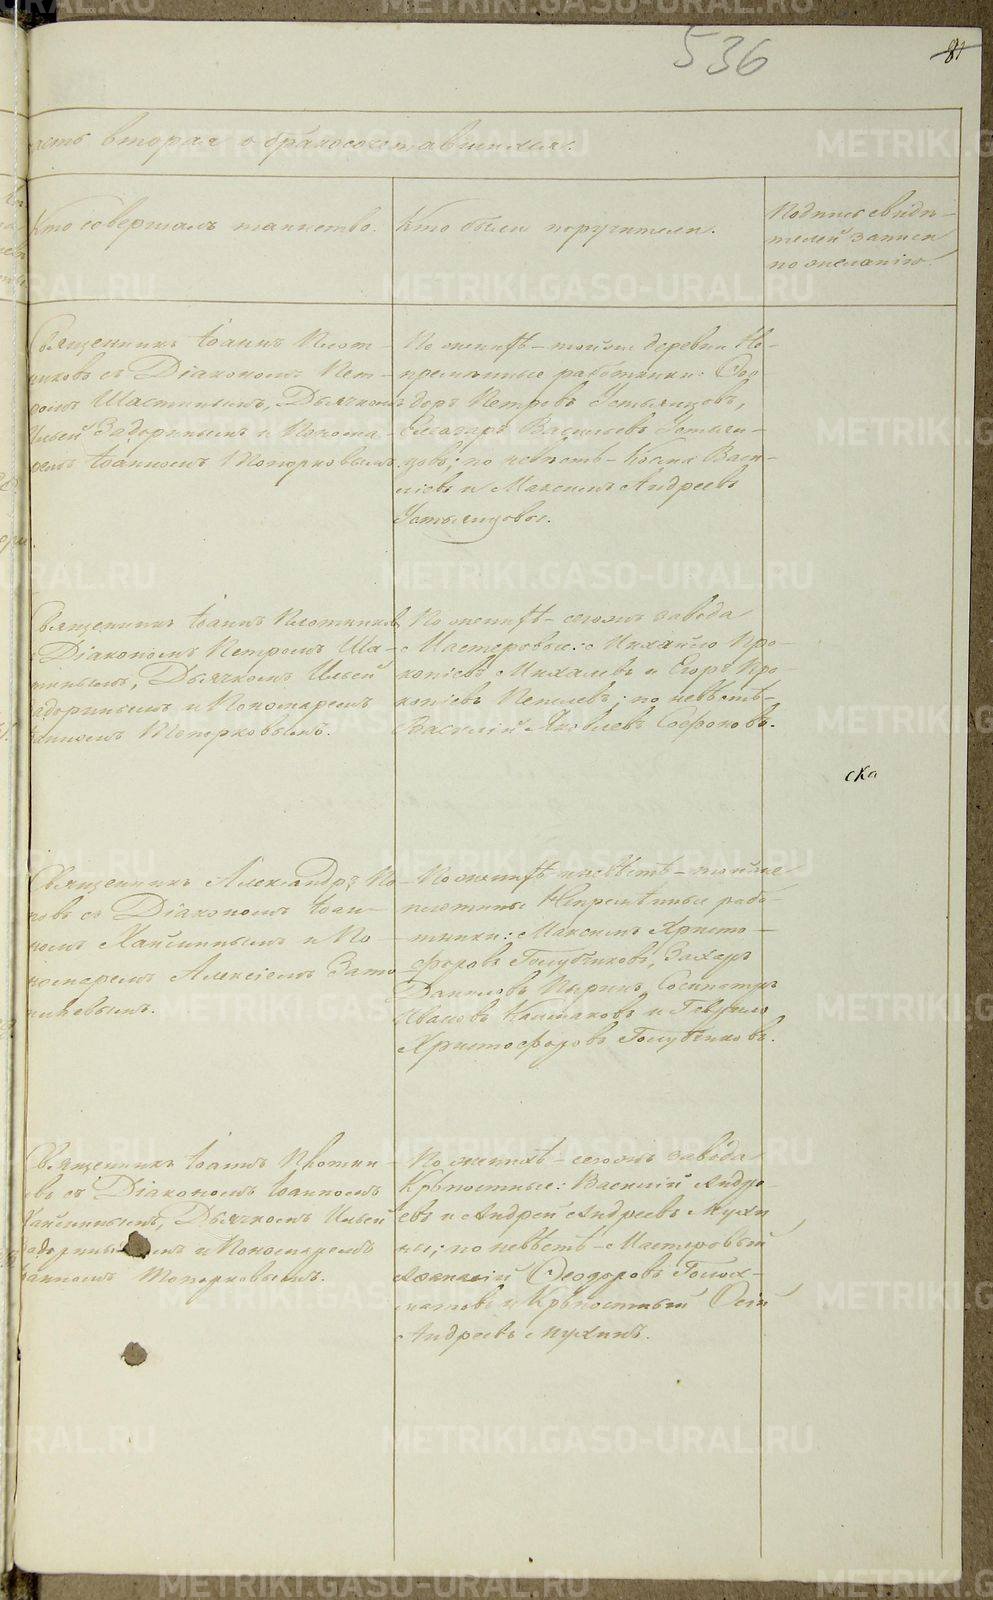 536
81
асть вторая о бракосочетавшихся.
Кто совершалъ таинство.
Кто были поручители.
Подпись свидѣ-
телей записи
по желанію.
Священникъ Іоаннъ Плот-
никовъ съ Діакономъ Пет-
ромъ Шастинымъ, Дьячкомъ
Ильей Задоринымъ и Понома-
ремъ Іоанномъ Топорковымъ.
По женихѣ – тойже деревни Не-
премѣнные работники: Ѳео-
доръ Петровъ Устьянцовъ,
Елеазаръ Васильевъ Устьян-
цовъ; по невѣстѣ – Косма Васи-
ліевъ и Максимъ Андреевъ
Устьянцовы.
Священникъ Іоаннъ Плотниковъ
Діакономъ Петромъ Ша-
тинымъ, Дьячкомъ Ильей
адоринымъ и Пономаремъ
Іанномъ Топорковымъ.
По женихѣ – сегожъ завода
Мастеровые: Михайло Про-
копіевъ Михалевъ и Егоръ Про-
копіевъ Пепилевъ; по невѣстѣ –
Василій Яковлевъ Софоновъ.
ска
Священникъ Александръ По-
повъ съ Діакономъ Іоан-
номъ Хансинымъ и По-
номаремъ Алексіемъ
По женихѣ и невѣстѣ – тойже
Непремѣнные рабо-
тники: Максимъ Христо-
форовъ Голубчиковъ, Захаръ
Даниловъ Пыринъ, Сосипатръ
Ивановъ и Гаврило
Христофоровъ Голубчиковъ.
Священникъ Іоаннъ Плотни-
овъ съ Діакономъ Іоанномъ
Хансинымъ, Дьячкомъ Ильей
адоринымъ и Пономаремъ
Іанномъ Топорковымъ.
По женихѣ – сегожъ завода
Крѣпостные: Василій Андре-
евъ и Андрей Андреевъ Мухи
ны; по невѣстѣ – Мастеровый
Аѳанасій Ѳеодоровъ
и Крѣпостный Осій
Андреевъ Мухинъ.
METRIKI.GASO-URAL.RU